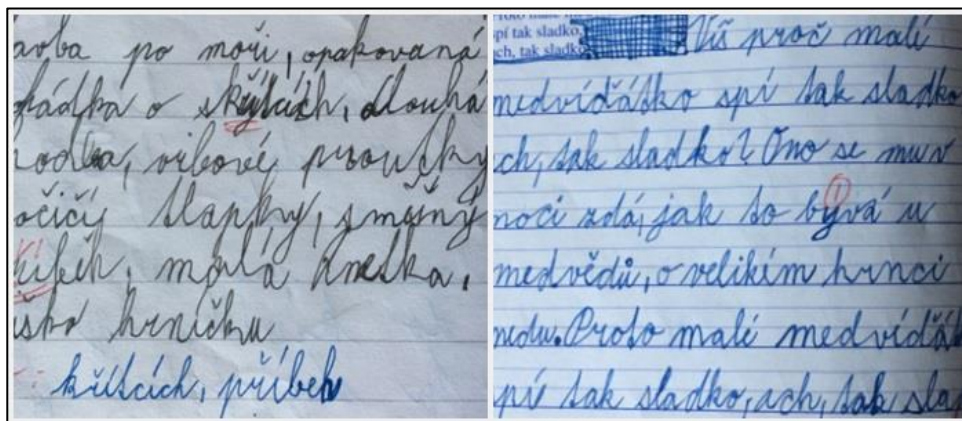 avba po moři, opakovaná
hádka o skřítcích, dlouhá
vrbové proutky
očičí tlapky, smešný
říběh, malá dneska,
hrníčku
křítcích, příbeh
spí tak sladko,
ach, tak sladko
Víš proč malé
medvíďátko spí tak sladko
ach, tak sladko? Ono se mu v
noci zdá, jak to bývá u
medvědů, o velikém hrnci
medu. Proto malé medvíďátk
spí tak sladko, ach, tak sla